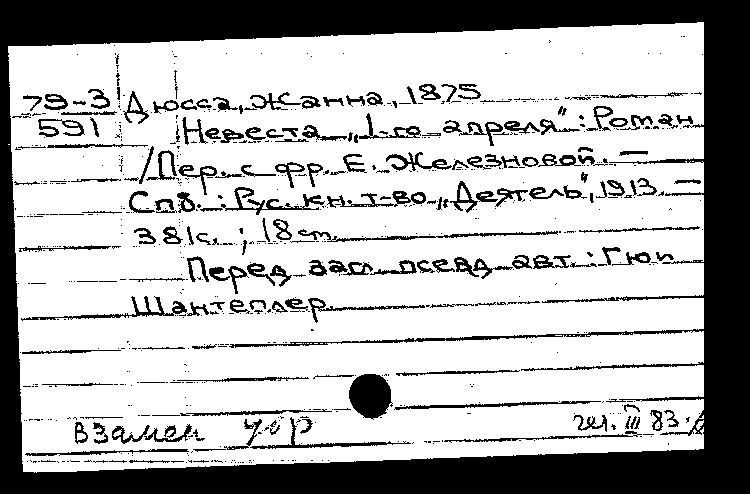 79-3 Дюсса, Жанна, 1875
591 Невеста „1-го апреля“: Роман
/Пер. с фр. Е. Железновой. —
Спб.: Рус. кн. т-во „Деятель“, 1913. —
381с. ; 18 см.
Перед загл. псевд. авт.: Гюи
Шантеплер.
Взамен
III 83.